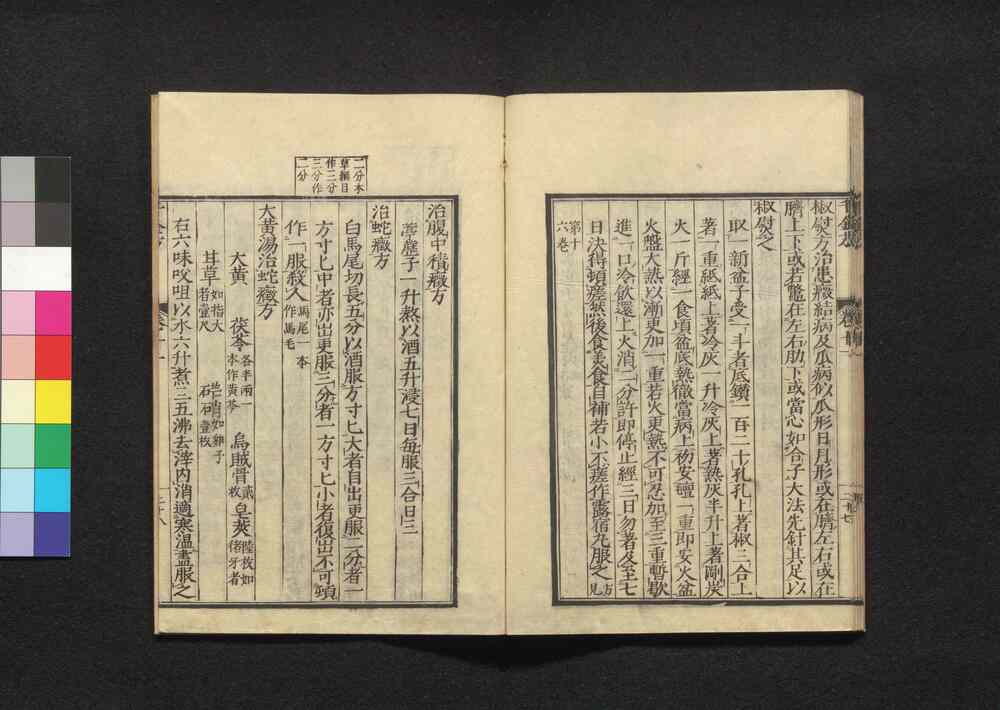 椒熨方治患癥結病及爪病似爪形日月形或在臍左右或在
臍上下或若鼈在左右肋下或當心如合子大法先針其足以
椒熨之
取一新盆子受一斗者底鑽一百二十孔孔上著椒三合上
著一重紙紙上著冷灰一升冷灰上著熱灰半升上著剛炭
火一斤經一食頃盆底熱徹當病上初安氊一重即安火盆
火盤大熱以漸更加一重若火更熱不可忍加至三重暫歇
進一口冷飲還上火消二分許即停止經三日勿著及至七
日決得頓瘥然後食美食自補若小不瘥作露宿丸服之方見
第十六卷
治腹中積癥方
葶藶子一升熬以酒五升浸七日每服三合日三
治蛇癥方
白馬尾切長五分以酒服方寸匕大者自出更服二分者一
二分本草綱目作三分三分作二分
方寸匕中者亦出更服三分者一方寸匕小者復出不可頓
作一服殺人馬尾一本作馬毛
大黃湯治蛇癥方
大黃 茯苓各半兩一本作黃芩 烏賊骨貳枚 皂莢陸枚如豬牙者
甘草如指大者壹尺 芒硝如雞子 壹枚
右六味㕮咀以水六升煮三五沸去滓内消適寒溫盡服之